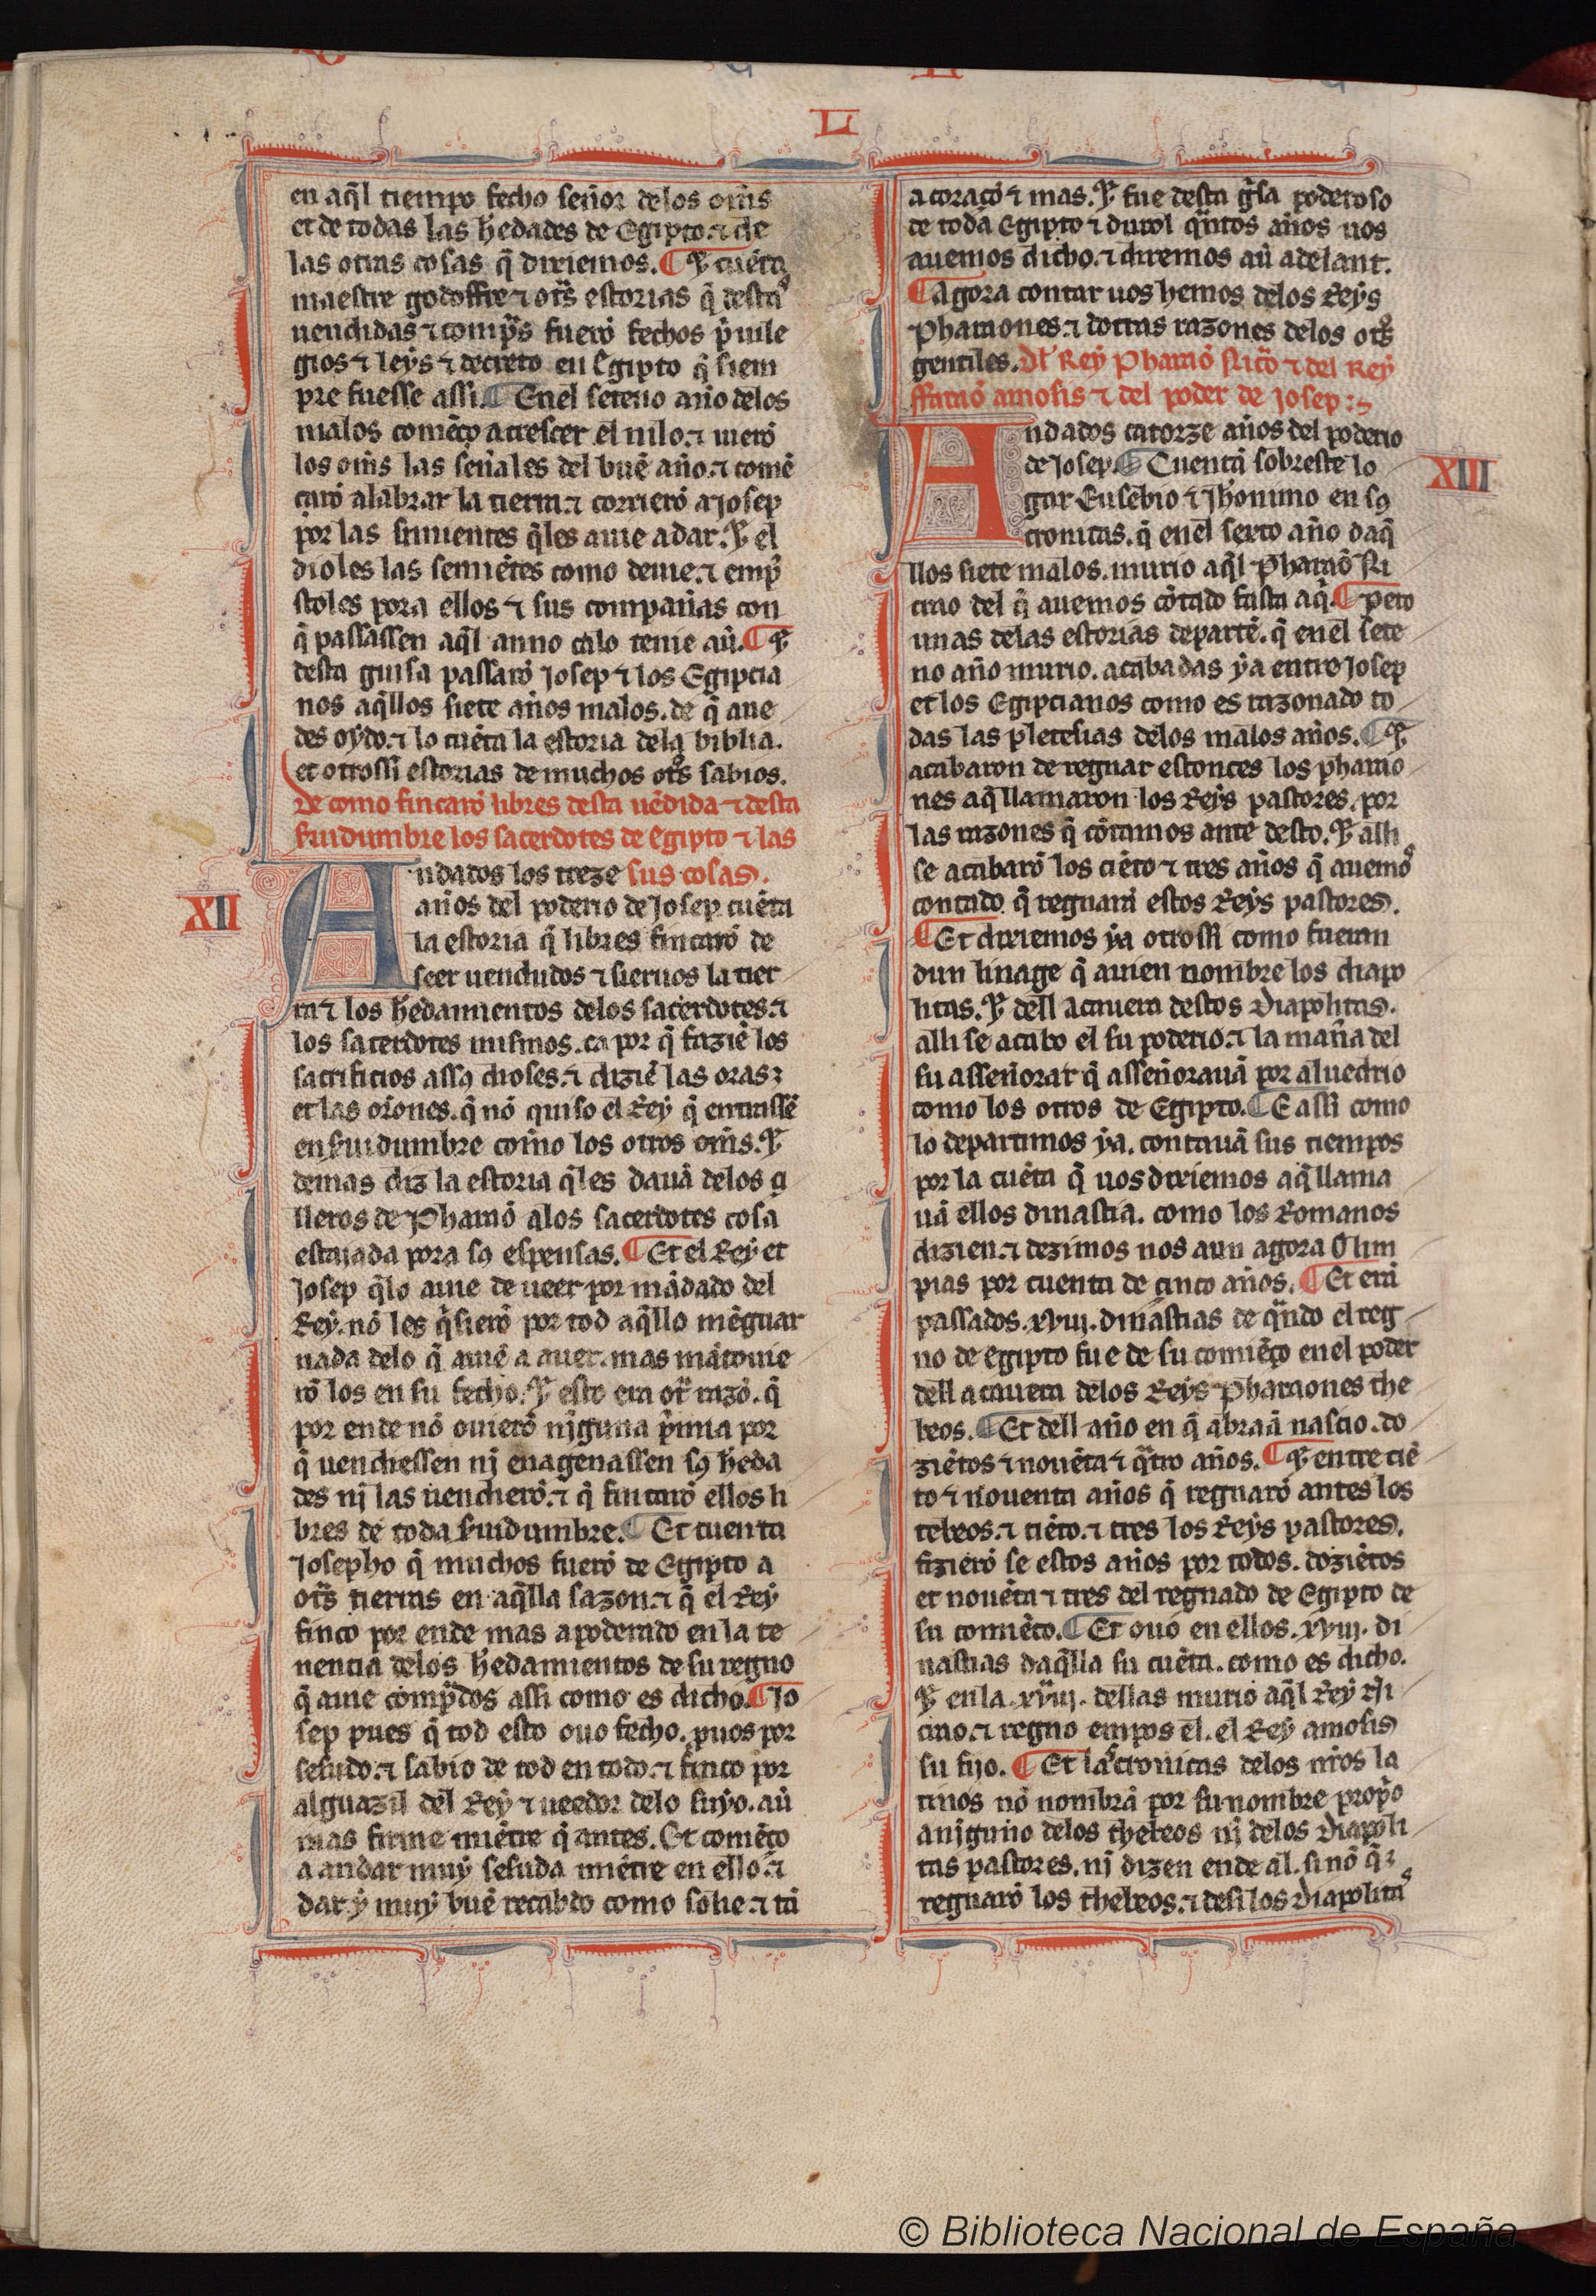 L
en aq̃l tiempo fecho señor delos om̃s
et de todas las hedades de Egipto. ⁊ de
las otras cosas q̃ dixiemos. ¶ ⁊ cuẽta
maestre godoffre ⁊ otr̃s estorias q̃ destas
uendidas ⁊ comp̃s fuerõ fechos p̃uile
gios ⁊ leẏs ⁊ decreto en Egipto q̃ siem
pre fuesse assi. ¶ Enel seteno año delos
malos comẽço a crescer el nilo. ⁊ uierõ
los om̃s las señales del buẽ año. ⁊ comẽ
çarõ alabrar la tierra. ⁊ corrierõ a Josep
por las simientes q̃les auie adar. ⁊ el
dioles las semiẽtes como deuie. ⁊ emp̃
stoles pora ellos ⁊ sus compañas con
q̃ passassen aq̃l anno ca lo tenie aũ. ¶ ⁊
desta guisa passarõ Josep ⁊ los Egipcia
nos aq̃llos siete años malos. de q̃ aue
des oẏdo. ⁊ lo cuẽta la estoria dela biblia.
et otrossi estorias de muchos otr̃s sabios.
De como fincarõ libres desta uẽdida ⁊ desta
seruidumbre los sacerdotes de Egipto ⁊ las
sus cosas.
XII
Andados los treze
años del poderio de Josep cuẽta
la estoria q̃ libres fincarõ de
seer uendudos ⁊ sieruos la tier
ra ⁊ los hedamientos delos sacerdotes. ⁊
los sacerdotes mismos. ca por q̃ faziẽ los
sacrificios assꝯ dioses. ⁊ diziẽ las oras;
et las or̃ones. q̃ nõ quiso el Reẏ q̃ entrassẽ
en seruidumbre com̃o los otros om̃s. ⁊
demas diz la estoria q̃les dauã delos ce
lleros de Pharaõ alos sacerdotes cosa
estaiada pora sꝯ espensas. ¶ Et el Reẏ et
Josep q̃lo auie de ueer por mãdado del
Reẏ. nõ les q̃sierõ por tod aq̃llo mẽguar
nada delo q̃ auiẽ a auer. mas mãtouie
rõ los en su fecho. ⁊ esto era otr̃ razõ. q̃
por ende nõ ouierõ nĩguna p̃mia por
q̃ uendiessen nj enagenassen sꝯ heda
des nj las uendierõ. ⁊ q̃ fincarõ ellos li
bres de toda seruidumbre. ¶ Et cuenta
Josepho q̃ muchos fuerõ de Egipto a
otr̃s tierras en aq̃lla sazon. ⁊ q̃ el Reẏ
finco por ende mas apoderado en la te
nencia delos hedamientos de su regno
q̃ auie comp̃dos assi como es dicho. ¶ Jo
sep pues q̃ tod esto ouo fecho. puos por
sesudo. ⁊ sabio de tod en todo. ⁊ finco por
alguazil del Reẏ ⁊ ueedor delo suẏo. aũ
mas firme miẽtre q̃ antes. Et comẽço
a andar muẏ sesuda miẽtre en ello. ⁊
dar ẏ muẏ buẽ recabdo como solie. ⁊ tã
a coraçõ ⁊ mas. ⁊ fue desta g̃sa poderoso
de toda Egipto ⁊ durol q̃ntos años uos
auemos dicho. ⁊ diremos aũ adelant.
¶ Agora contar uos hemos delos Reẏs
Pharaones. ⁊ dotras razones delos otr̃s
gentiles. Dl Reẏ Pharaõ Nicr̃o ⁊ del Rey
ffaraõ amosis ⁊ del poder de Josep:
XIII
Andados catorze años del poderio
de Josep. ¶ Cuentã sobreste lo
gar Eusebio ⁊ Jheronimo en sꝯ
cronicas. q̃ enel sexto año daq̃
llos siete malos. murio aq̃l Pharaõ Ni
crao del q̃ auemos cõtado fasta aq̃. ¶ Pero
unas delas estorias departẽ. q̃ enel sete
no año murio. acabadas ẏa entre Josep
et los Egipcianos como es razonado to
das las pletesias delos malos años. ¶ ⁊
acabaron de regnar estonces los phario
nes aq̃llamaron los Reẏs pastores. por
las razones q̃ cõtamos ante desto. ⁊ alli
se acabarõ los ciẽto ⁊ tres años q̃ auemos
contado q̃ regnarã estos Reẏs pastores.
¶ Et dixiemos ẏa otrossi como fueran
dun linage q̃ auien nombre los diapo
litas. ⁊ dell acauera destos Diapolitas.
alli se acabo el su poderio. ⁊ la mañа del
su asseñorar q̃ asseñorauã por aluedrio
como los otros de Egipto. ¶ E assi como
lo departimos ẏa. contauã sus tiempos
por la cuẽta q̃ uos dixiemos aq̃llama
uã ellos dinastia. como los Romanos
dizien. ⁊ dezimos nos aun agora Olim
pias por cuenta de cinco años. ¶ Et erã
passados. xvııj. dinastias de q̃ndo el reg
no de Egipto fue de su comiẽço enel poder
dell acauera delos Reẏs Pharaones the
beos. ¶ Et dell año en q̃ abraã nascio. do
ziẽtos ⁊ nouẽta ⁊ q̃tro años. ¶ ⁊ entre ciẽ
to ⁊ nouenta años q̃ regnarõ antes los
tebeos. ⁊ ciẽto. ⁊ tres los Reẏs pastores.
fizierõ se estos años por todos. doziẽtos
et nouẽta ⁊ tres del regnado de Egipto de
su comiẽço. ¶ Et ouo en ellos. xvııj. di
nastias daq̃lla su cuẽta. como es dicho.
⁊ enla. xvııj. dellas murio aq̃l Reẏ Ni
crao. ⁊ regno empos el. el Reẏ amosis
su fijo. ¶ Et las cronicas delos nr̃os la
tinos nõ nombrã por su nombre prop̃o
a niguno delos thebeos nj delos Diapoli
tas pastores. nj dizen ende al. si nõ q̃;
regnarõ los thebeos. ⁊ desi los Diapolitas
© Biblioteca Nacional de España